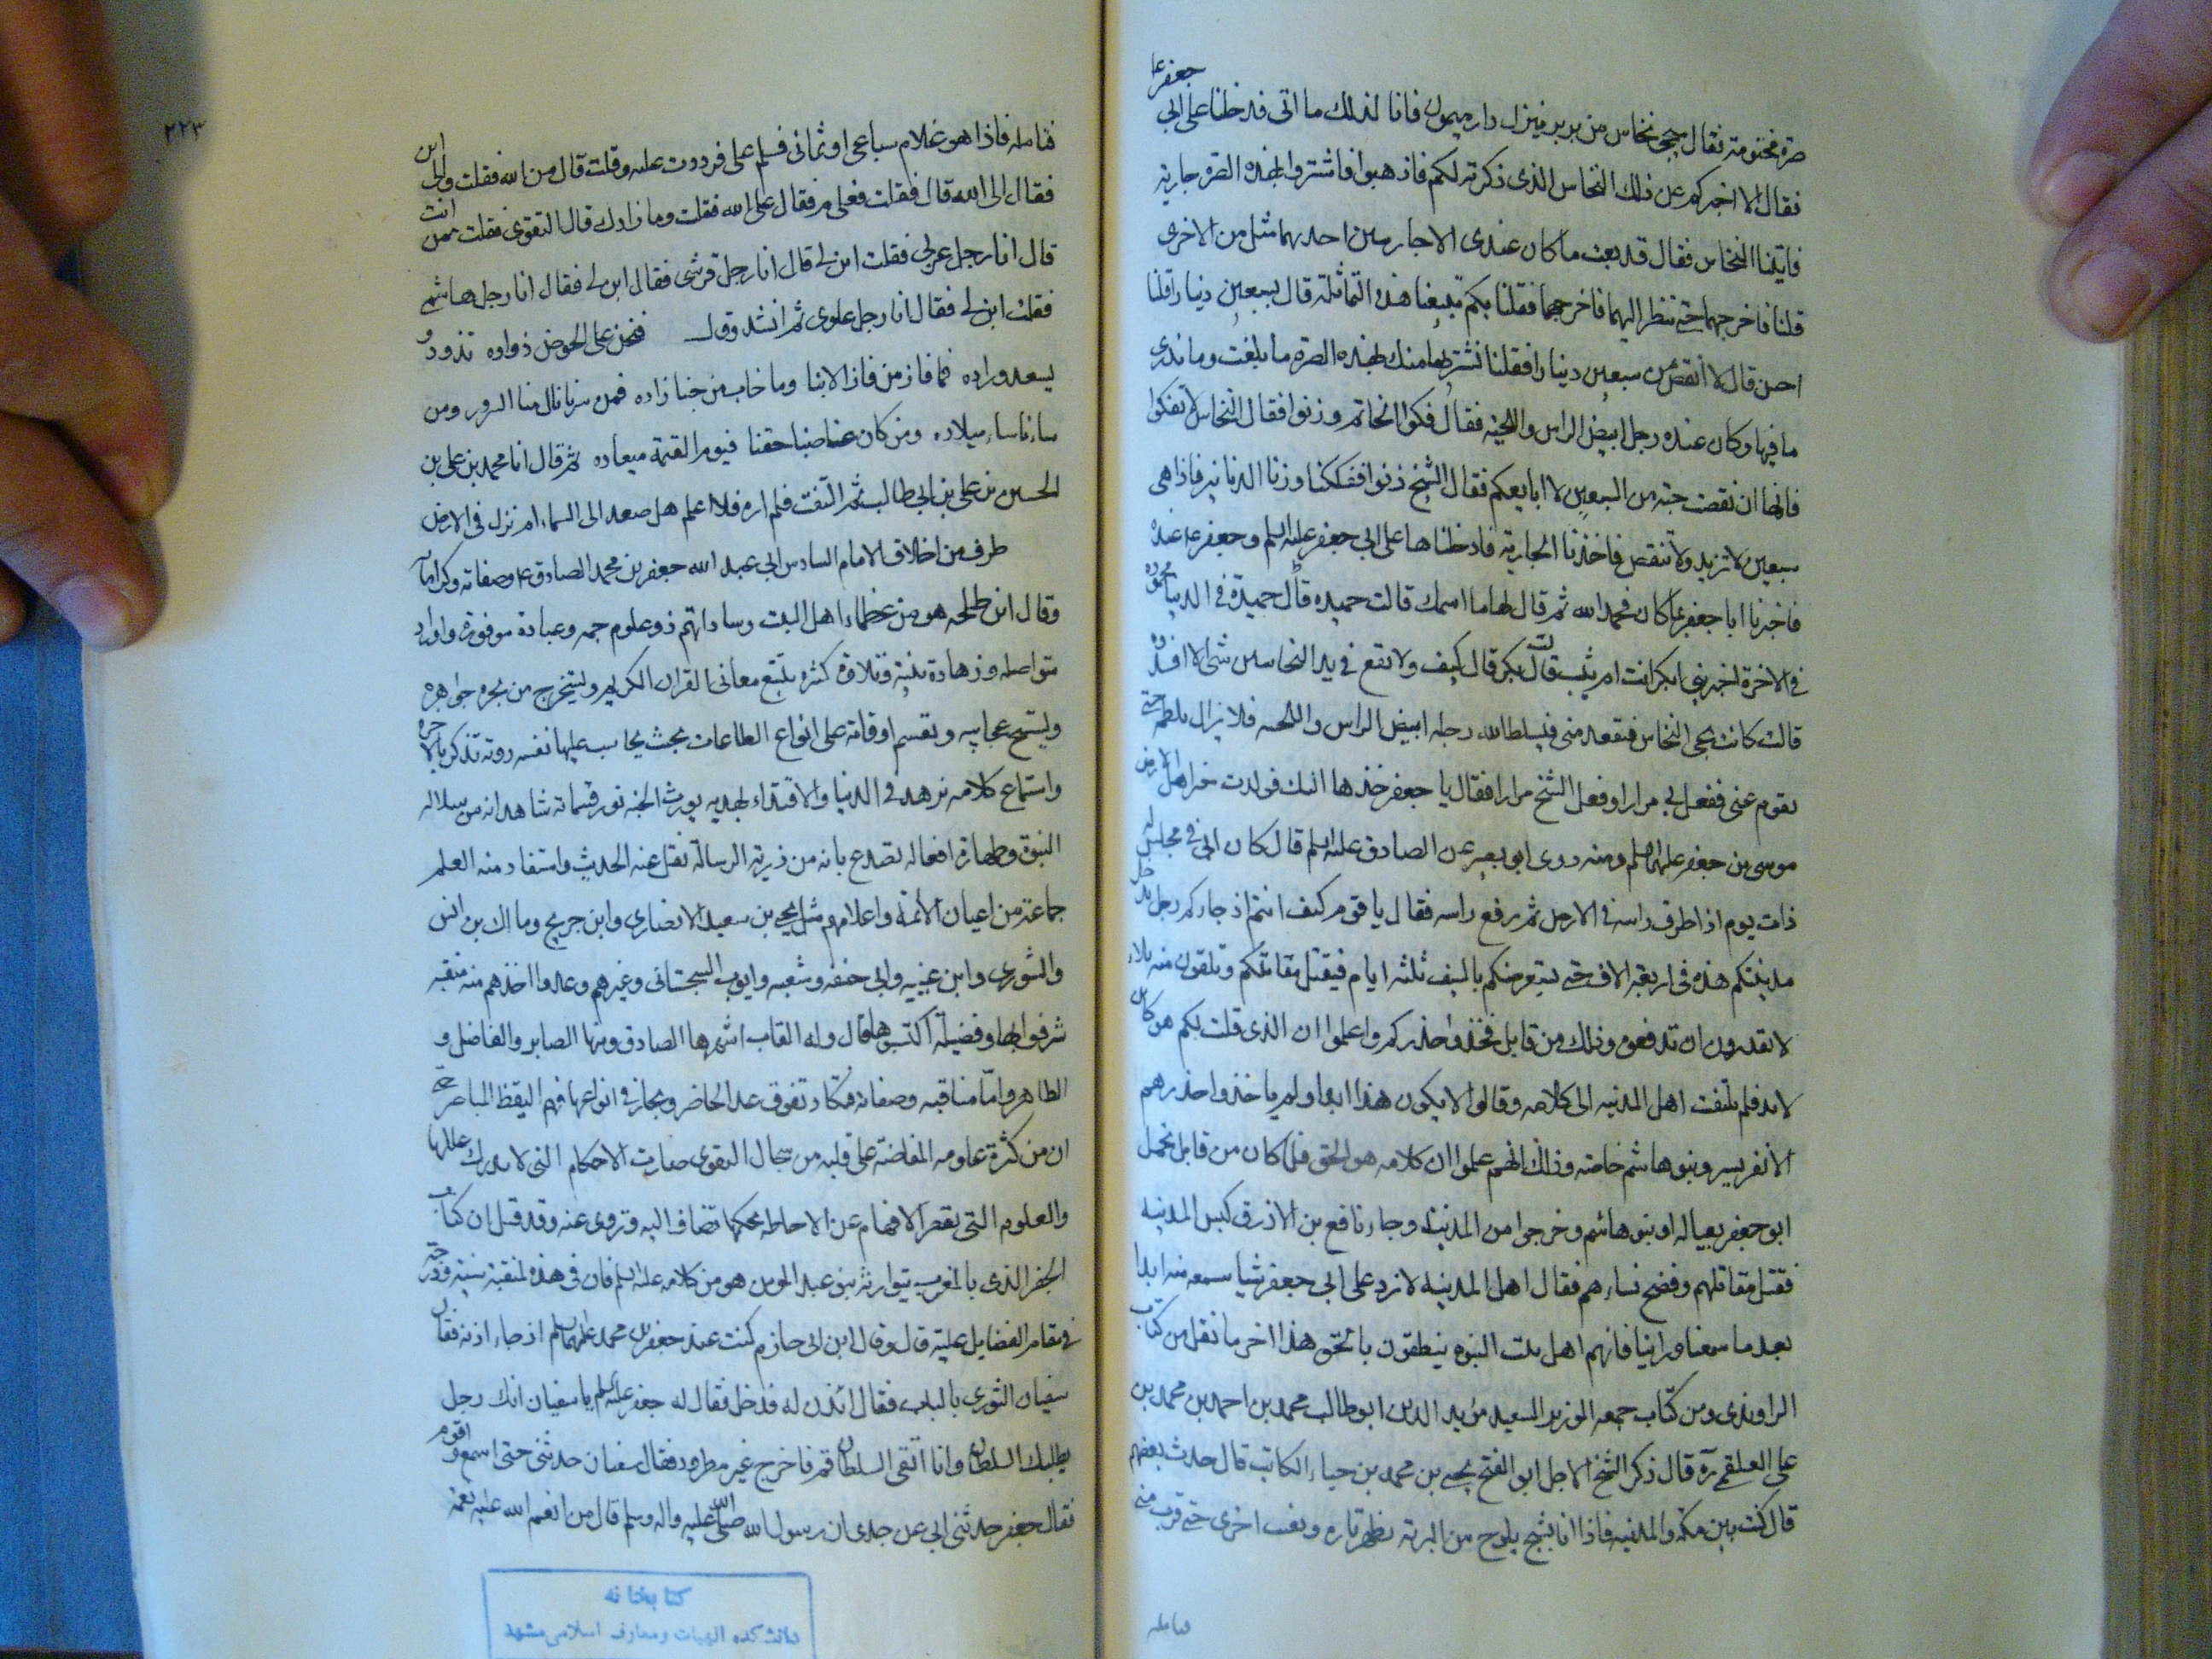 صرة مختومة فقال سيجئ نخاس من بربر ينزل دار ميمون فانا لذلك ما اتى فدخلنا على ابي جعفر ع
فقال الا اخبركم عن ذلك النخاس الذي ذكرته لكم فاذهبوا فاشتروا بهذه الصرة جارية
فاتينا النخاس فقال قد بعت ما كان عندي الا جاريتين احديهما مثل من الاخرى
قلنا فاخرجهما حتى ننظر اليهما فاخرجهما فقلنا بكم تبيعنا هذه المتماثلة قال بسبعين دينارا قلنا
احسن قال لا انقص من سبعين دينارا فقلنا نشتريها منك بهذه الصرة ما بلغت وما ندري
ما فيها وكان عنده رجل ابيض الراس واللحية فقال فكوا الخاتم وزنوا فقال النخاس لا تفكوا
فانها ان نقصت حبة من السبعين لا ابايعكم فقال الشيخ زنوا ففككنا وزنا الدنانير فاذا هي
سبعين لا تزيد ولا تنقص فاخذنا الجارية فادخلناها على ابي جعفر عليه السلم وجعفر ع عنده
فاخبرنا ابا جعفر بما كان فحمد الله ثم قال لها ما اسمك قالت حميده قال حميدة في الدنيا محموده
في الاخرة اخبريني ابكر انت ام ثيب قالت بكر قال كيف ولا يقع في يد النخاسين شئ الا افسدوه
قالت كان يجئ النخاس فيقعد مني فيسلط الله رجلا ابيض الراس واللحيه فلا يزال يلطمه حتى
يقوم عني ففعل بي مرارا وفعل الشيخ مرارا فقال يا جعفر خذها اليك فولدت خير اهل الارض
موسى بن جعفر عليهما السلم ومنه روى ابو بصير عن الصادق عليه السلم قال كان ابي في مجلس له
ذات يوم اذا اطرق راسه في الارض ثم رفع راسه فقال يا قوم كيف انتم اذ جاءكم رجل يدخل
مدينتكم هذه في اربعة الاف حتى يستعرضكم بالسيف ثلثه ايام فيقتل مقاتلكم وتلقون منه بلاء
لا تقدرون ان تدفعوه وذلك من قابل فخذوا حذركم واعلموا ان الذي قلت لكم هو كاين
لا بد فلم يلتفت اهل المدينه الى كلامه وقالوا لا يكون هذا ابدا ولم ياخذوا حذرهم
الا نفر يسير وبنو هاشم خاصه وذلك انهم علموا ان كلامه هو الحق فلما كان من قابل تحمل
ابو جعفر بعياله وبنو هاشم وخرجوا من المدينة وجاء نافع بن الازرق كبس المدينه
فقتل مقاتلهم وفضح نساءهم فقال اهل المدينه لا نرد على ابي جعفر شيا سمعه منه ابدا
بعد ما سمعنا وراينا فانهم اهل بيت النبوه ينطقون بالحق هذا اخر ما نقل من كتاب
الراوندي ومن كتاب جمعه الوزير السعيد مؤيد الدين ابو طالب محمد بن احمد بن محمد بن
علي العلقمي ره قال ذكر الشيخ الاجل ابو الفتح يحيى بن محمد بن حياء الكاتب قال حدث بعضهم
قال كنت بين مكه والمدينه فاذا انا بشبح يلوح من البرية يظهر تارة ويغيب اخرى حتى قرب مني
فتامله
٣٢٣
فتامله فاذا هو غلام سباعي او ثماني فسلم علي فرددت عليه وقلت قال من الله فقلت والى اين
فقال الى الله قال فقلت فعلى م فقال على الله فقلت وما زادك قال التقوى فقلت ممن انت
قال انا رجل عربي فقلت ابن لي قال انا رجل قرشي فقال ابن لي فقال انا رجل هاشمي
فقلت ابن لي فقال انا رجل علوي ثم انشد وقال فنحن على الحوض ذواده تذود و
يسعد وراده فما فاز من فاز الا بنا وما خاب من حبنا زاده فمن سرنا نال منا السرور ومن
ساءنا ساء ميلاده ومن كان غاصبنا حقنا فيوم القيمة ميعاده ثم قال انا محمد بن علي بن
الحسين بن علي بن ابي طالب ثم التفت فلم اره فلا اعلم هل صعد الى السماء ام نزل في الارض
طرف من اخلاق الامام السادس ابي عبد الله جعفر بن محمد الصادق ع وصفاته وكراماته
وقال ابن طلحه هو من عظماء اهل البيت وساداتهم ذو علوم جمه وعبادة موفورة واوراد
متواصله وزهادة بينة وتلاوة كثيره يتتبع معاني القران الكريم ويستخرج من بحره جواهره
ويستنتج عجايبه ويقسم اوقاته على انواع الطاعات بحيث يحاسب عليها نفسه رويته تذكر بالاخره
واستماع كلامه يزهد في الدنيا والاقتداء بهديه يورث الجنه نور قسماته شاهد انه من سلاله
النبوة وطهارة افعاله تصدع بانه من ذرية الرسالة نقل عنه الحديث واستفاد منه العلم
جماعة من اعيان الائمة واعلامهم مثل يحيى بن سعيد الانصاري وابن جريج ومالك بن انس
والثوري وابن عيينه وابي حنيفه وشعبه وايوب السجستاني وغيرهم وعدوا اخذهم منه منقبه
شرفوا بها وفضيلة اكتسبوها قال وله القاب اشهرها الصادق ومنها الصابر والفاضل و
الطاهر واما مناقبه وصفاته فتكاد تفوق عد الحاضر ويحار في انواعها فهم اليقظ الباصر حتى
ان من كثرة علومه المفاضة على قلبه من سجال التقوى صارت الاحكام التي لا يدرك عللها
والعلوم التي يقصر الافهام عن الاحاطه بحكمها تضاف اليه وتروى عنه وقد قيل ان كتاب
الجفر الذي بالمغرب يتوارثه بنو عبد المومن هو من كلامه عليه السلم فان في هذه لمنقبة سنية ودرجة
في مقام الفضايل علية قال وقال ابن ابي حازم كنت عند جعفر بن محمد عليهما السلم اذ جاء اذنه فقال
سفيان الثوري بالباب فقال ائذن له فدخل فقال له جعفر عليه السلم يا سفيان انك رجل
يطلبك السلطان وانا اتقي السلطان قم فاخرج غير مطرود فقال سفيان حدثني حتى اسمع واقوم
فقال جعفر حدثني ابي عن جدي ان رسول الله صلى الله عليه واله وسلم قال من انعم الله عليه نعمة
كتابخانه
دانشكده الهيات ومعارف اسلامي مشهد